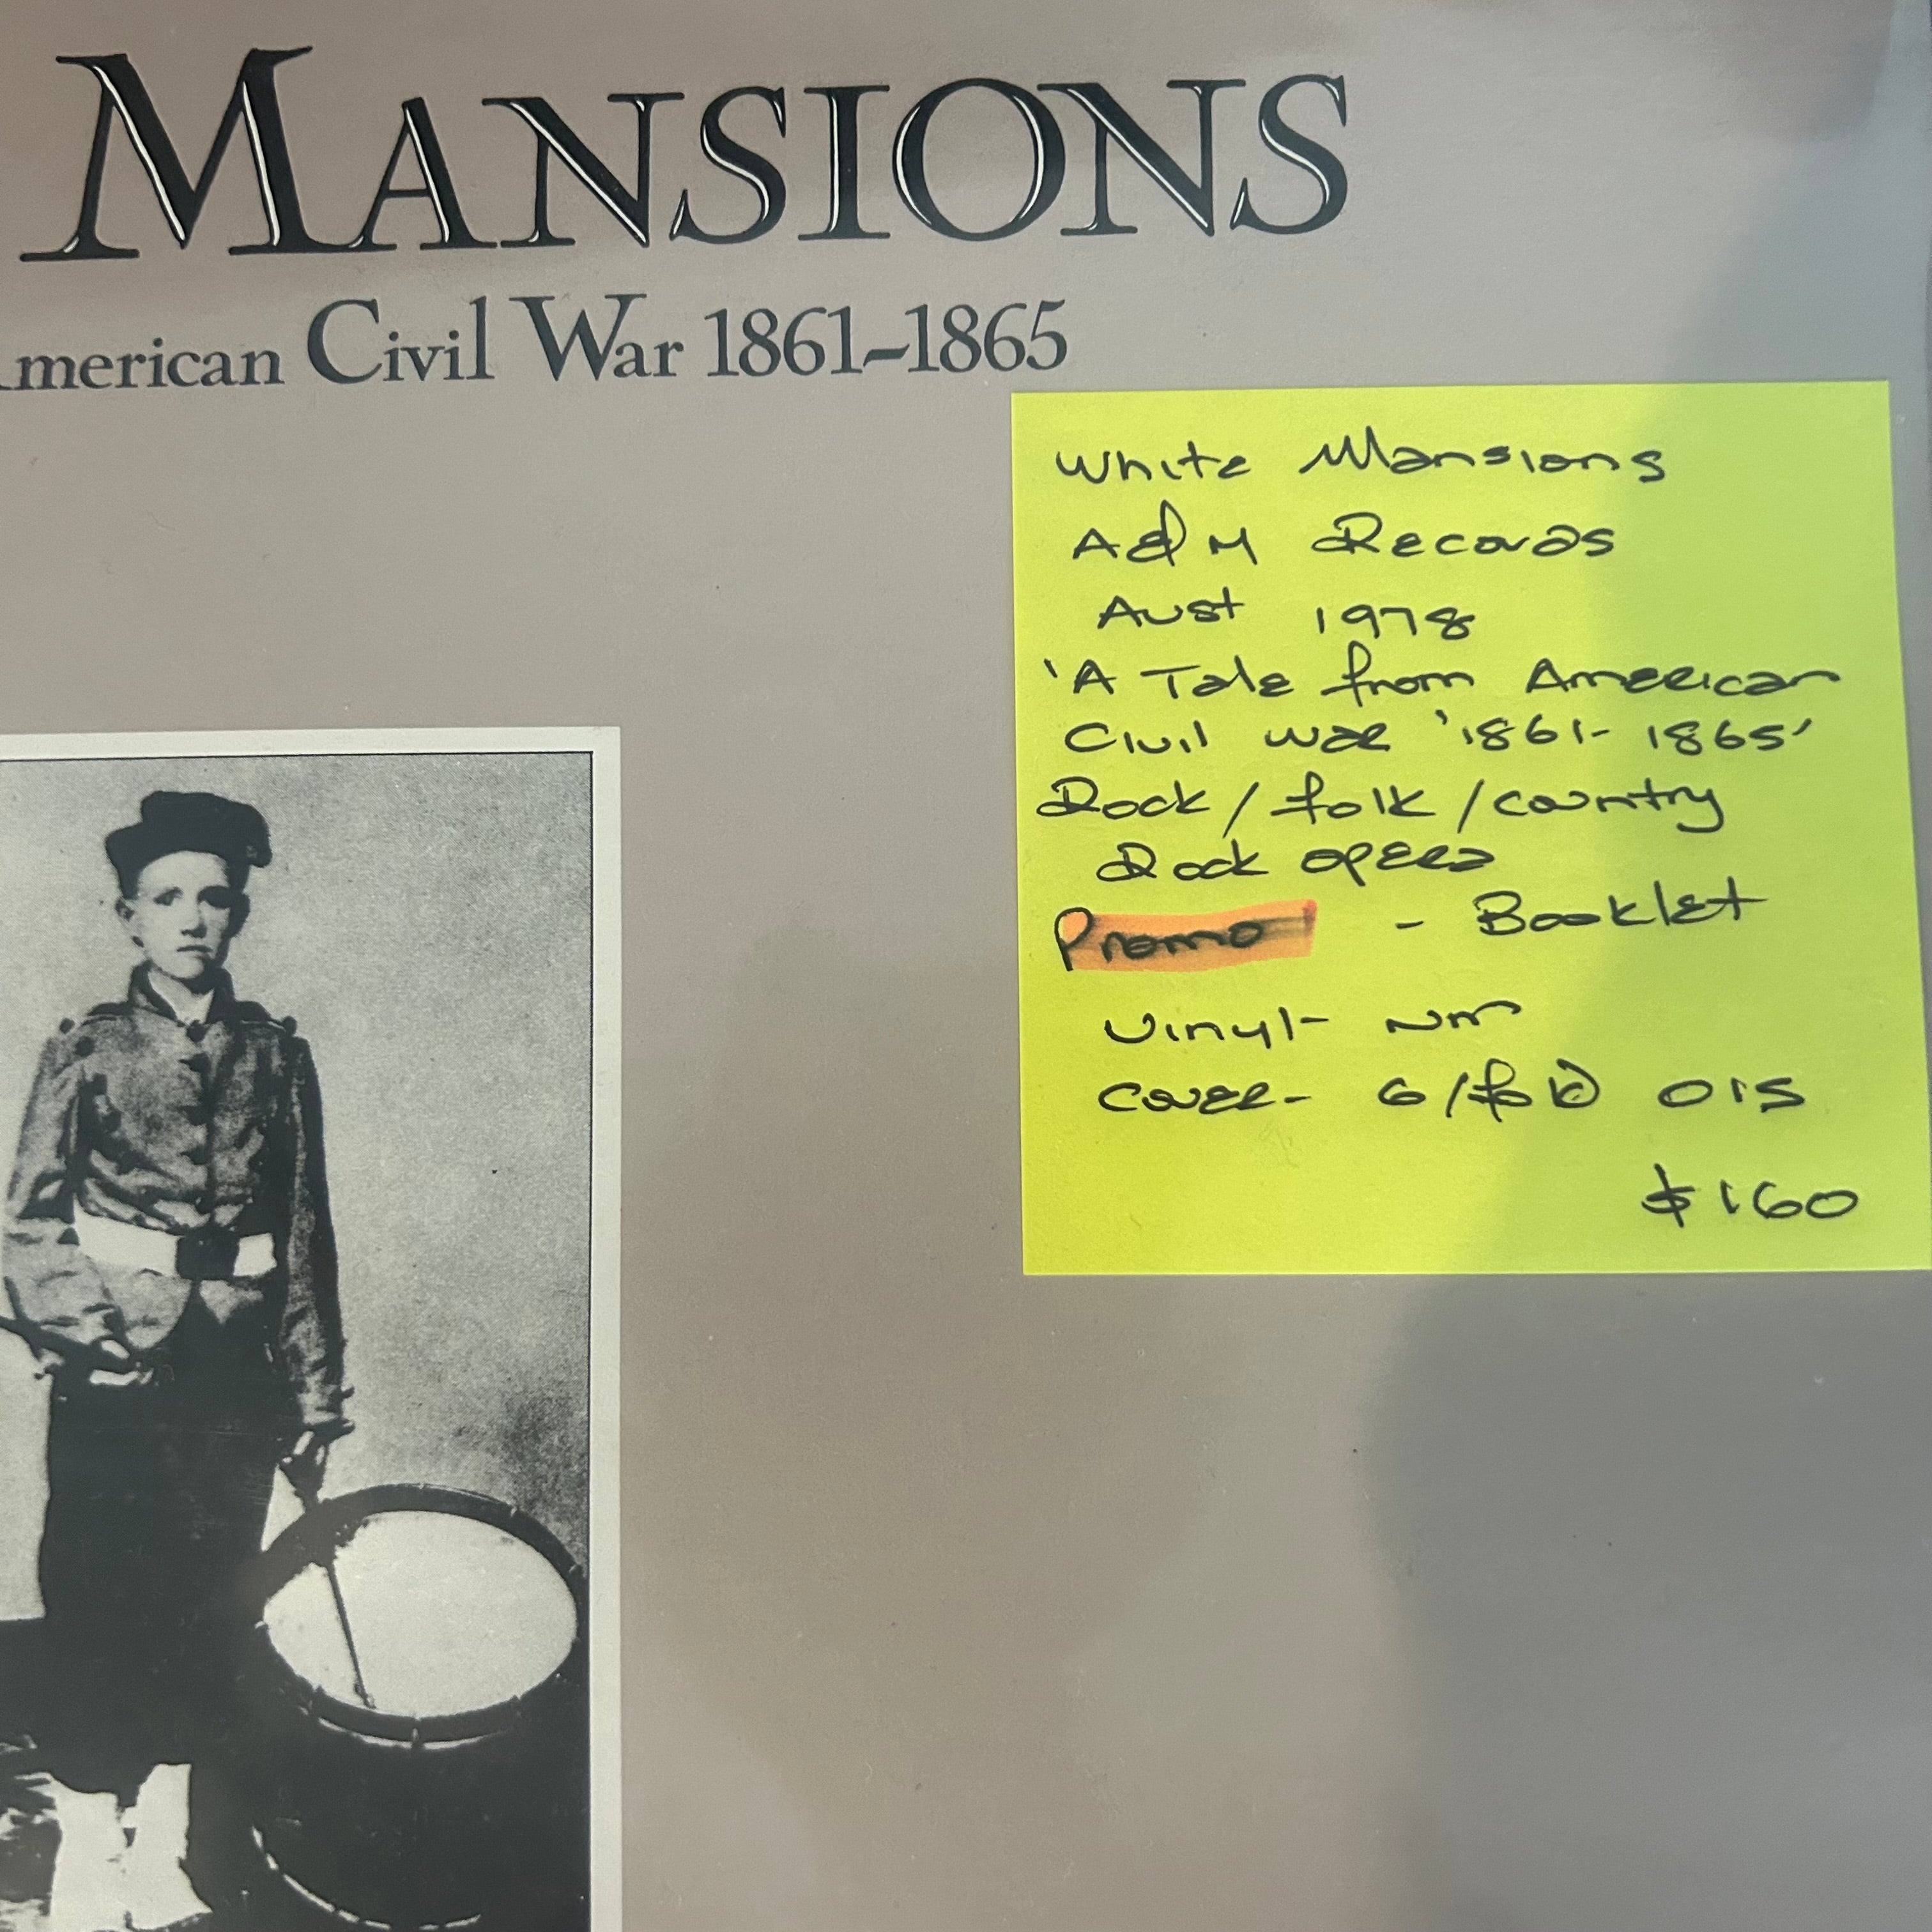 MANSIONS
merican Civil War 1861–1865
White Mansions
A&M Records
Aust 1978
'A Tale from American
Civil War '1861-1865'
Rock/folk/country
Rock opera
Promo - Booklet
Vinyl- NM
Cover- G/fold OIS
$160